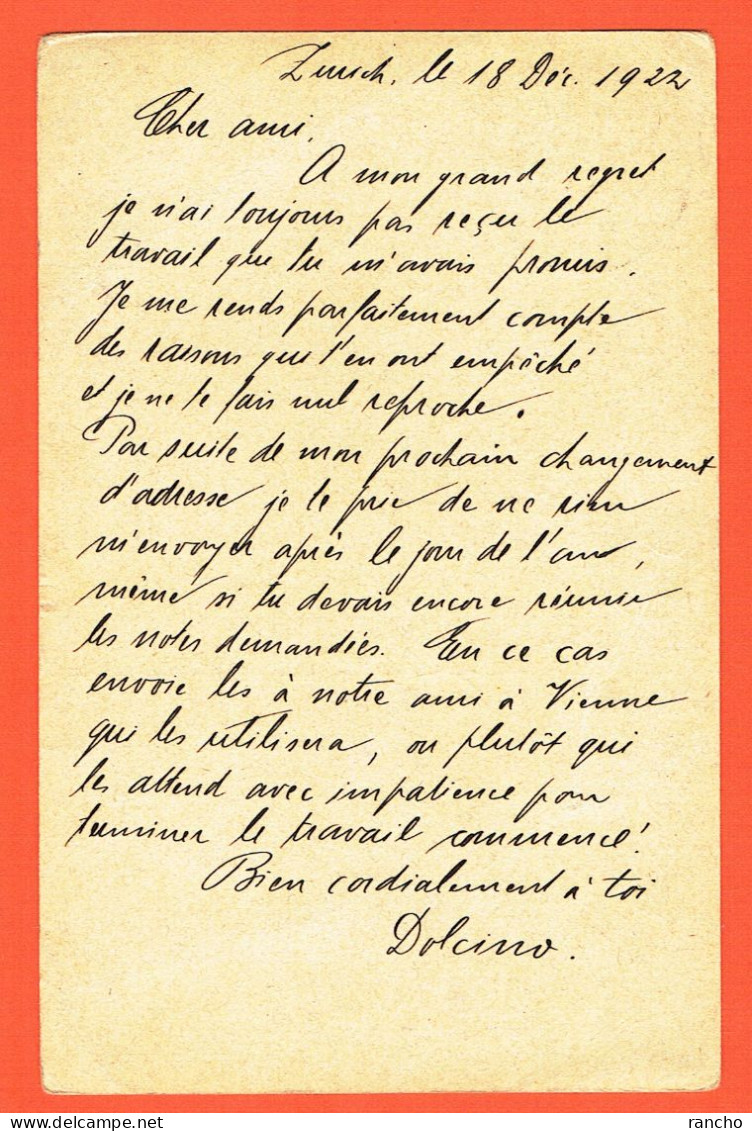 Zurich, le 18 Déc. 1922
Cher ami,
A mon grand regret
je n'ai toujours pas reçu le
travail que tu m'avais promis.
Je me rends parfaitement compte
des raisons qui t'en ont empêché
et je ne te fais nul reproche.
Par suite de mon prochain changement
d'adresse je te prie de ne rien
m'envoyer après le jour de l'an,
même si tu devais encore réunir
les notes demandées. En ce cas
envoie les à notre ami à Vienne
qui les utilisera, ou plutôt qui
les attend avec impatience pour
terminer le travail commencé!
Bien cordialement à toi
Dolcino.
rancho
delcampe.net